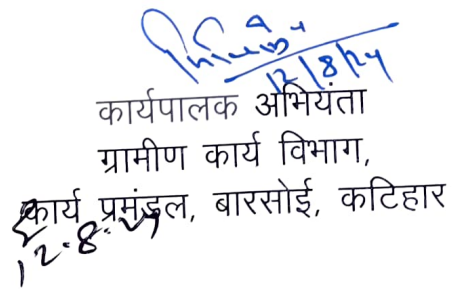 12/8/24
कार्यपालक अभियंता
ग्रामीण कार्य विभाग,
कार्य प्रमंडल, बारसोई, कटिहार
12.8.24